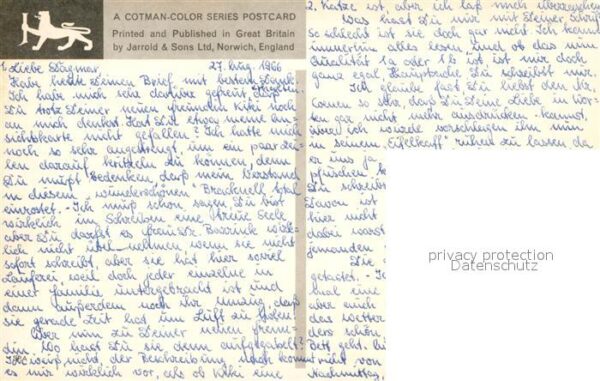 A COTMAN-COLOR SERIES POSTCARD
Printed and Published in Great Britain
by Jarrold & Sons Ltd, Norwich, England
1. Liebe Dagmar, 27. Aug. 1966
Habe heute Deinen Brief mit bestem Dank erhalten.
Ich habe mich sehr darüber gefreut, daß
Du trotz Deiner neuen Freundin Kiki noch
an mich denkst. Hat Dir etwa meine An-
sichtskarte nicht gefallen? Ich hatte mich
noch so sehr angestrengt, um ein paar Zei-
len darauf kritzeln zu können, denn
Du mußt bedenken, daß mein Verstand
in diesem "wunderschönen" Bracknell total
einrostet. - Ich muß schon sagen Du bist
wirklich im Schreiben eine treue Seele
aber Du darfst es wirk-
lich nicht übel nehmen wenn sie nicht
sofort schreibt, aber sie hat hier soviel
Lauferei, weil doch jeder einzelne in
einer Familie untergebracht ist und
dann außerdem noch ihr Umzug, daß
sie gerade Zeit hat um Luft zu holen!
Aber nun zu Deiner neuen Freun-
din. Wo hast Du sie denn aufgegabelt?
Ich weiß nicht, der Beschreibung nach kommt
es mir wirklich vor, als ob Kiki eine
2. Katze ist, aber ich laß mich überzeugen
Was hast Du nur mit Deiner Schrift
So schlecht ist sie doch gar nicht. Ich kann
immerhin alles lesen, und ob das nun
Qualität 1a oder 1b ist ist mir doch
ganz egal. Hauptsache Du schreibst mir.
Ich glaube fast Du liebst den Dr.
so sehr, daß Du Deine Liebe in Wor-
ten gar nicht mehr ausdrücken kannst.
ich würde vorschlagen ihn nun
in seinem "Eifelkaff" ruhen zu lassen, da
er uns ja
pfuschen
Du schreibst
Davon ist
hier nicht
dabei warst
jemanden
Die
getastet. - Ic
mal eine
aber auch
das Wetter
ders schön
Bett geht.
nicht vor
Nachmittag,
privacy protection
Datenschutz